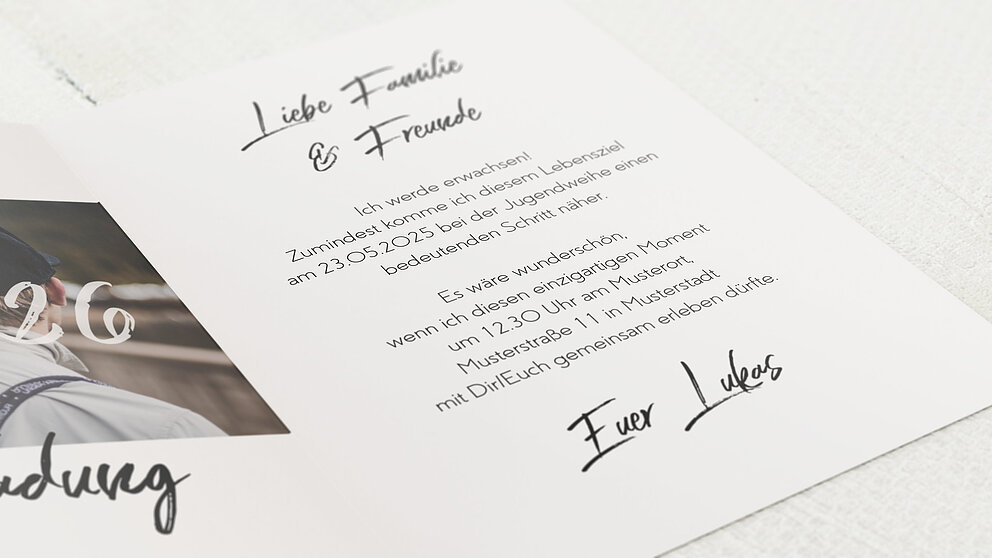 Liebe Familie
& Freunde
Ich werde erwachsen!
Zumindest komme ich diesem Lebensziel
am 23.05.2025 bei der Jugendweihe einen
bedeutenden Schritt näher.
Es wäre wunderschön,
wenn ich diesen einzigartigen Moment
um 12.30 Uhr am Musterort,
Musterstraße 11 in Musterstadt
mit Dir/Euch gemeinsam erleben dürfte.
Euer Lukas
26